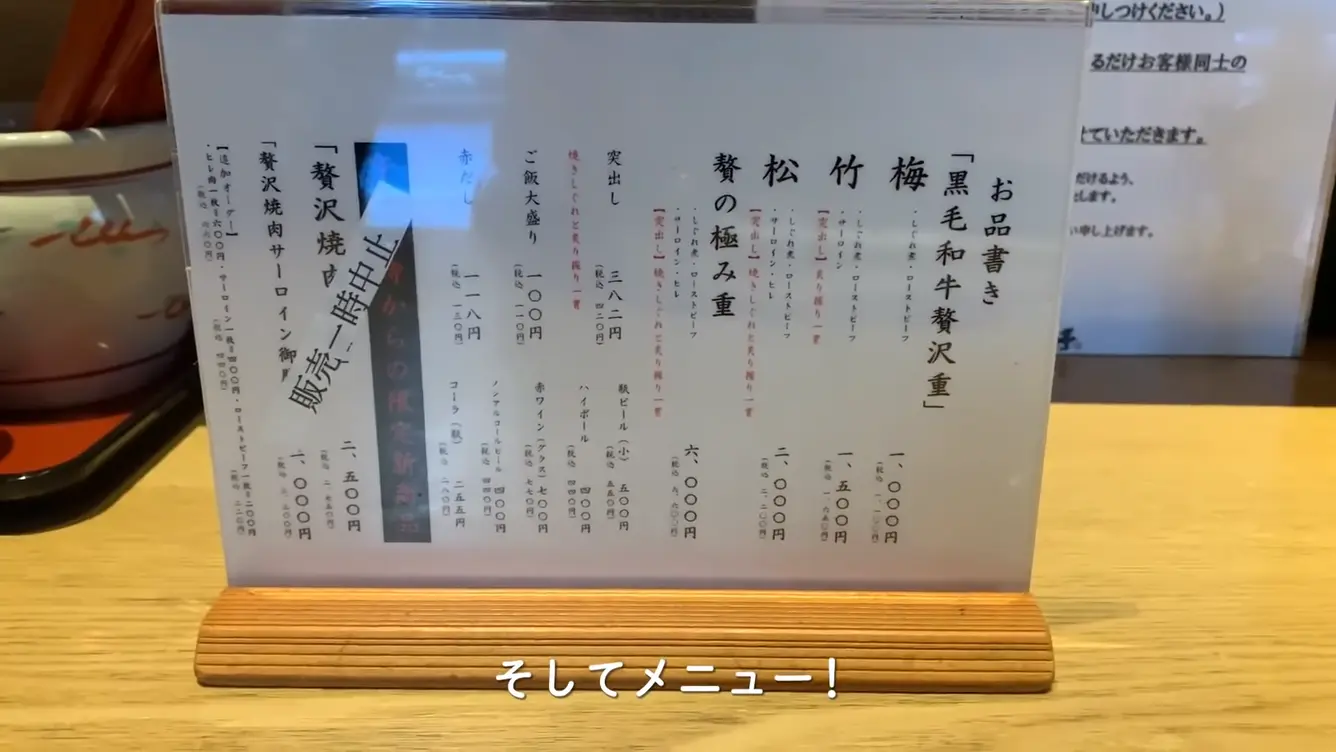 お品書き
「黒毛和牛贅沢重」
梅
・しぐれ煮・ローストビーフ
一、〇〇〇円
(税込 一、一〇〇円)
竹
・しぐれ煮・ローストビーフ
・サーロイン
【突出し】炙り握り一貫
一、五〇〇円
(税込 一、六五〇円)
松
・しぐれ煮・ローストビーフ
・サーロイン・ヒレ
【突出し】焼きしぐれと炙り握り一貫
二、〇〇〇円
(税込 二、二〇〇円)
贅の極み重
・しぐれ煮・ローストビーフ
・サーロイン・ヒレ
【突出し】焼きしぐれと炙り握り一貫
六、〇〇〇円
(税込 六、六〇〇円)
突出し 三八二円
(税込 四二〇円)
焼きしぐれと炙り握り一貫
ご飯大盛り 一〇〇円
(税込 一一〇円)
赤だし 一一八円
(税込 一三〇円)
瓶ビール(小) 五〇〇円
(税込 五五〇円)
ハイボール 四〇〇円
(税込 四四〇円)
赤ワイン(グラス) 七〇〇円
(税込 七七〇円)
ノンアルコールビール 四〇〇円
(税込 四四〇円)
コーラ(瓶) 二五五円
(税込 二八〇円)
からの限定新商品
販売一時中止
「贅沢焼肉
二、五〇〇円
(税込 二、七五〇円)
「贅沢焼肉サーロイン御
(税込
【追加オーダー】
・ヒレ肉一枚=六〇〇円・サーロイン一枚=四〇〇円・ローストビーフ一枚=二〇〇円
(税込 六六〇円) (税込 四四〇円) (税込 二二〇円)
しつけください。)
るだけお客様同士の
せていただきます。
だけるよう、
します。
い申し上げます。
そしてメニュー!